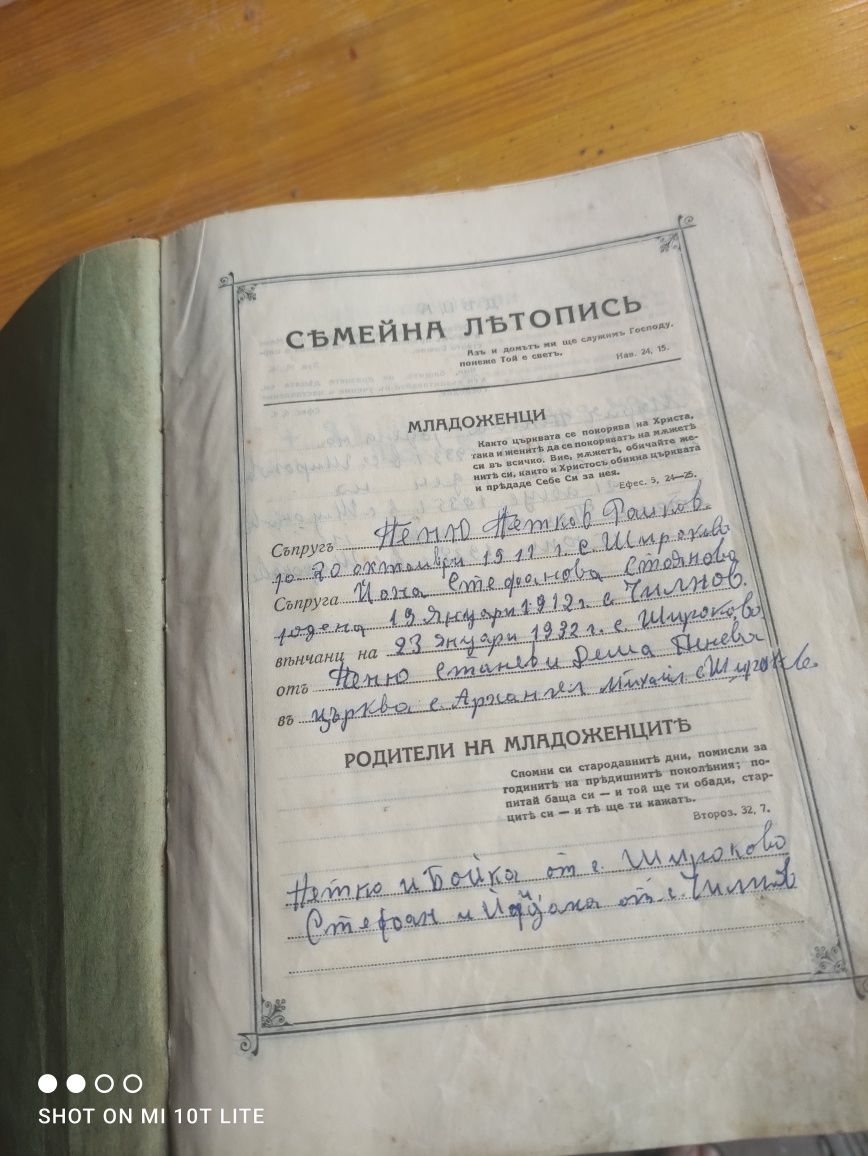 СѢМЕЙНА ЛѢТОПИСЬ
Азъ и домътъ ми ще служимъ Господу,
понеже Той е светъ.
Нав. 24, 15.
МЛАДОЖЕНЦИ
Както църквата се покорява на Христа,
така и женитѣ да се покоряватъ на мѫжетѣ
си въ всичко. Вие, мѫжетѣ, обичайте же-
нитѣ си, както и Христосъ обикна църквата
и прѣдаде Себе Си за нея.
Ефес. 5, 24—25.
Съпругъ Пеню Петков Рашков.
ро 20 октомври 1911 г. с. Широково
Съпруга Йона Стефанова Стоянова
родена 19 Януари 1912 г. с. Чилнов.
вѣнчани на 23 януари 1932 г. с. Широково
отъ Пеню Станев и Деша Пенева
въ църква с. Архангел Михаил с. Широково.
РОДИТЕЛИ НА МЛАДОЖЕНЦИТѢ
Спомни си стародавнитѣ дни, помисли за
годинитѣ на прѣдишнитѣ поколѣния; по-
питай баща си — и той ще ти обади, стар-
цитѣ си — и тѣ ще ти кажатъ.
Второз. 32, 7.
Петко и Бойка от с. Широково
Стефан и от с. Чилнов
SHOT ON MI 10T LITE